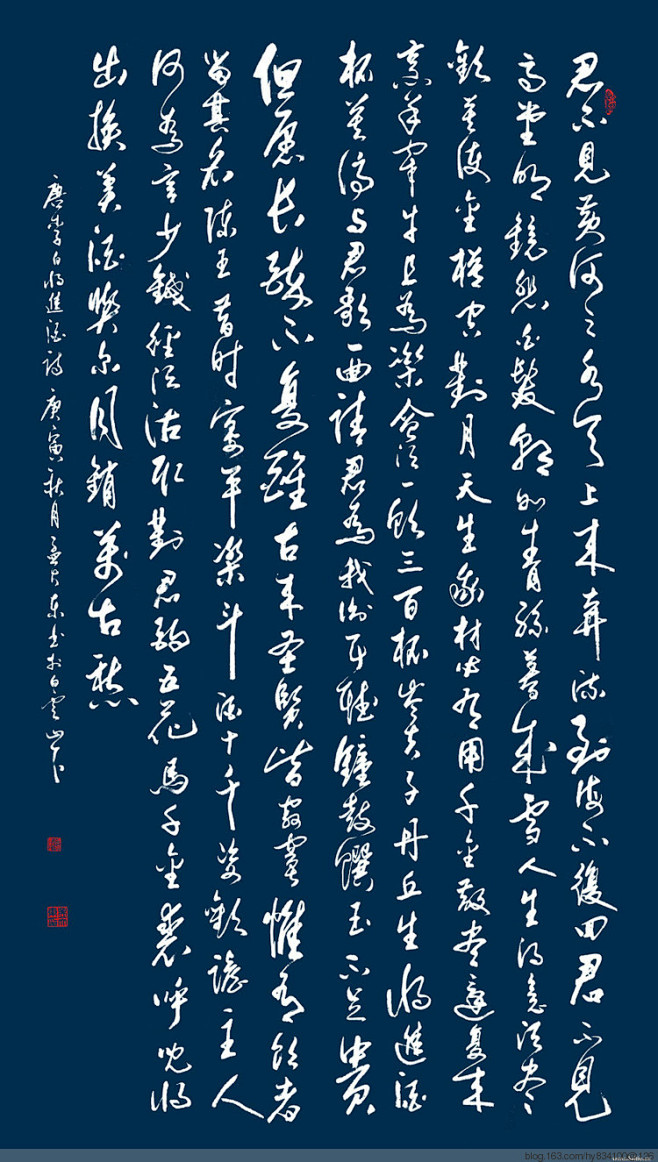 君不見黄河之水天上来奔流到海不復回君不見
高堂明鏡悲白髮朝如青絲暮成雪人生得意須尽
歡莫使金樽空對月天生我材必有用千金散尽還復来
烹羊宰牛且為樂會須一飲三百杯岑夫子丹丘生将進酒
杯莫停与君歌一曲請君為我側耳聴鐘鼓饌玉不足貴
但愿长醉不复醒古来圣賢皆寂寞惟有飲者
留其名陳王昔时宴平樂斗酒十千恣歡謔主人
何為言少錢径須沽取對君酌五花馬千金裘呼児将
出換美酒與尔同銷萬古愁
唐李白将進酒詩 庚寅秋月孟东书于白雲山下